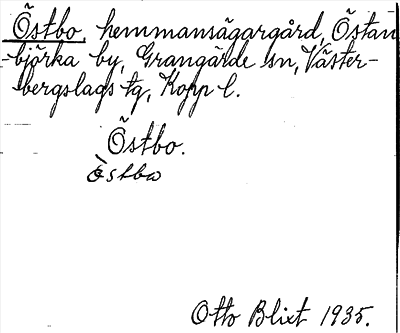 Östbo, hemmansägargård, Östan-
björka by, Grangärde sn, Väster-
bergslags tg, Kopp l.
Östbo.
Òstbω
Otto Blixt 1935.